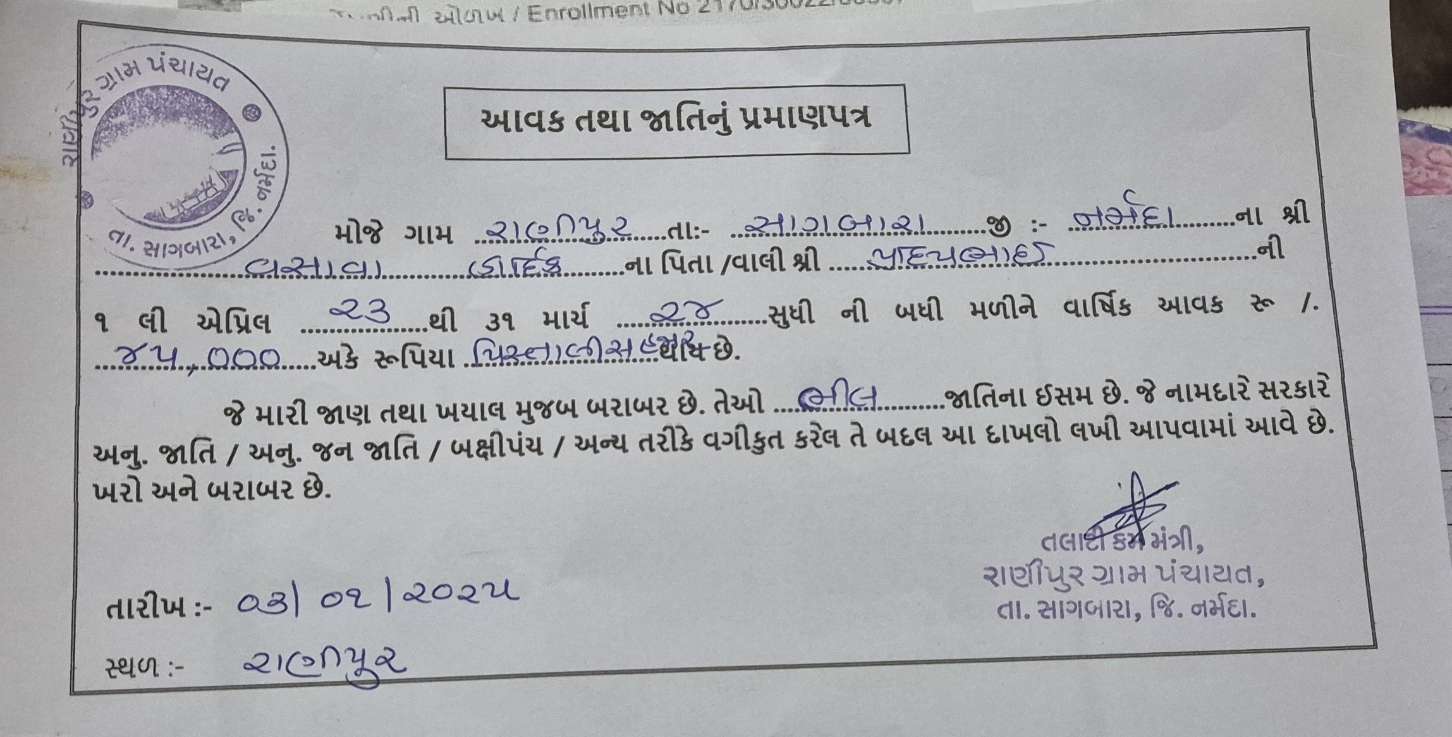 ઓળખ / Enrollment No
રાણીપુર ગ્રામ પંચાયત
તા. સાગબારા, જિ. નર્મદા.
આવક તથા જાતિનું પ્રમાણપત્ર
મોજે ગામ રાણીપુર તા:- સાગબારા જી :- નર્મદા ના શ્રી
વસાવા હાર્દિક ના પિતા /વાલી શ્રી ની
૧ લી એપ્રિલ ૨૩ થી ૩૧ માર્ચ ૨૪ સુધી ની બધી મળીને વાર્ષિક આવક રૂ /.
૪૫,૦૦૦ અકે રૂપિયા પિસ્તાલીસ હજાર થાય છે.
જે મારી જાણ તથા ખયાલ મુજબ બરાબર છે. તેઓ ભીલ જાતિના ઈસમ છે. જે નામદારે સરકારે
અનુ. જાતિ / અનુ. જન જાતિ / બક્ષીપંચ / અન્ય તરીકે વગીકૃત કરેલ તે બદલ આ દાખલો લખી આપવામાં આવે છે.
ખરો અને બરાબર છે.
તલાટી કમ મંત્રી,
રાણીપુર ગ્રામ પંચાયત,
તા. સાગબારા, જિ. નર્મદા.
તારીખ :- ૦૩/ ૦૨ /૨૦૨૫
સ્થળ :- રાણીપુર